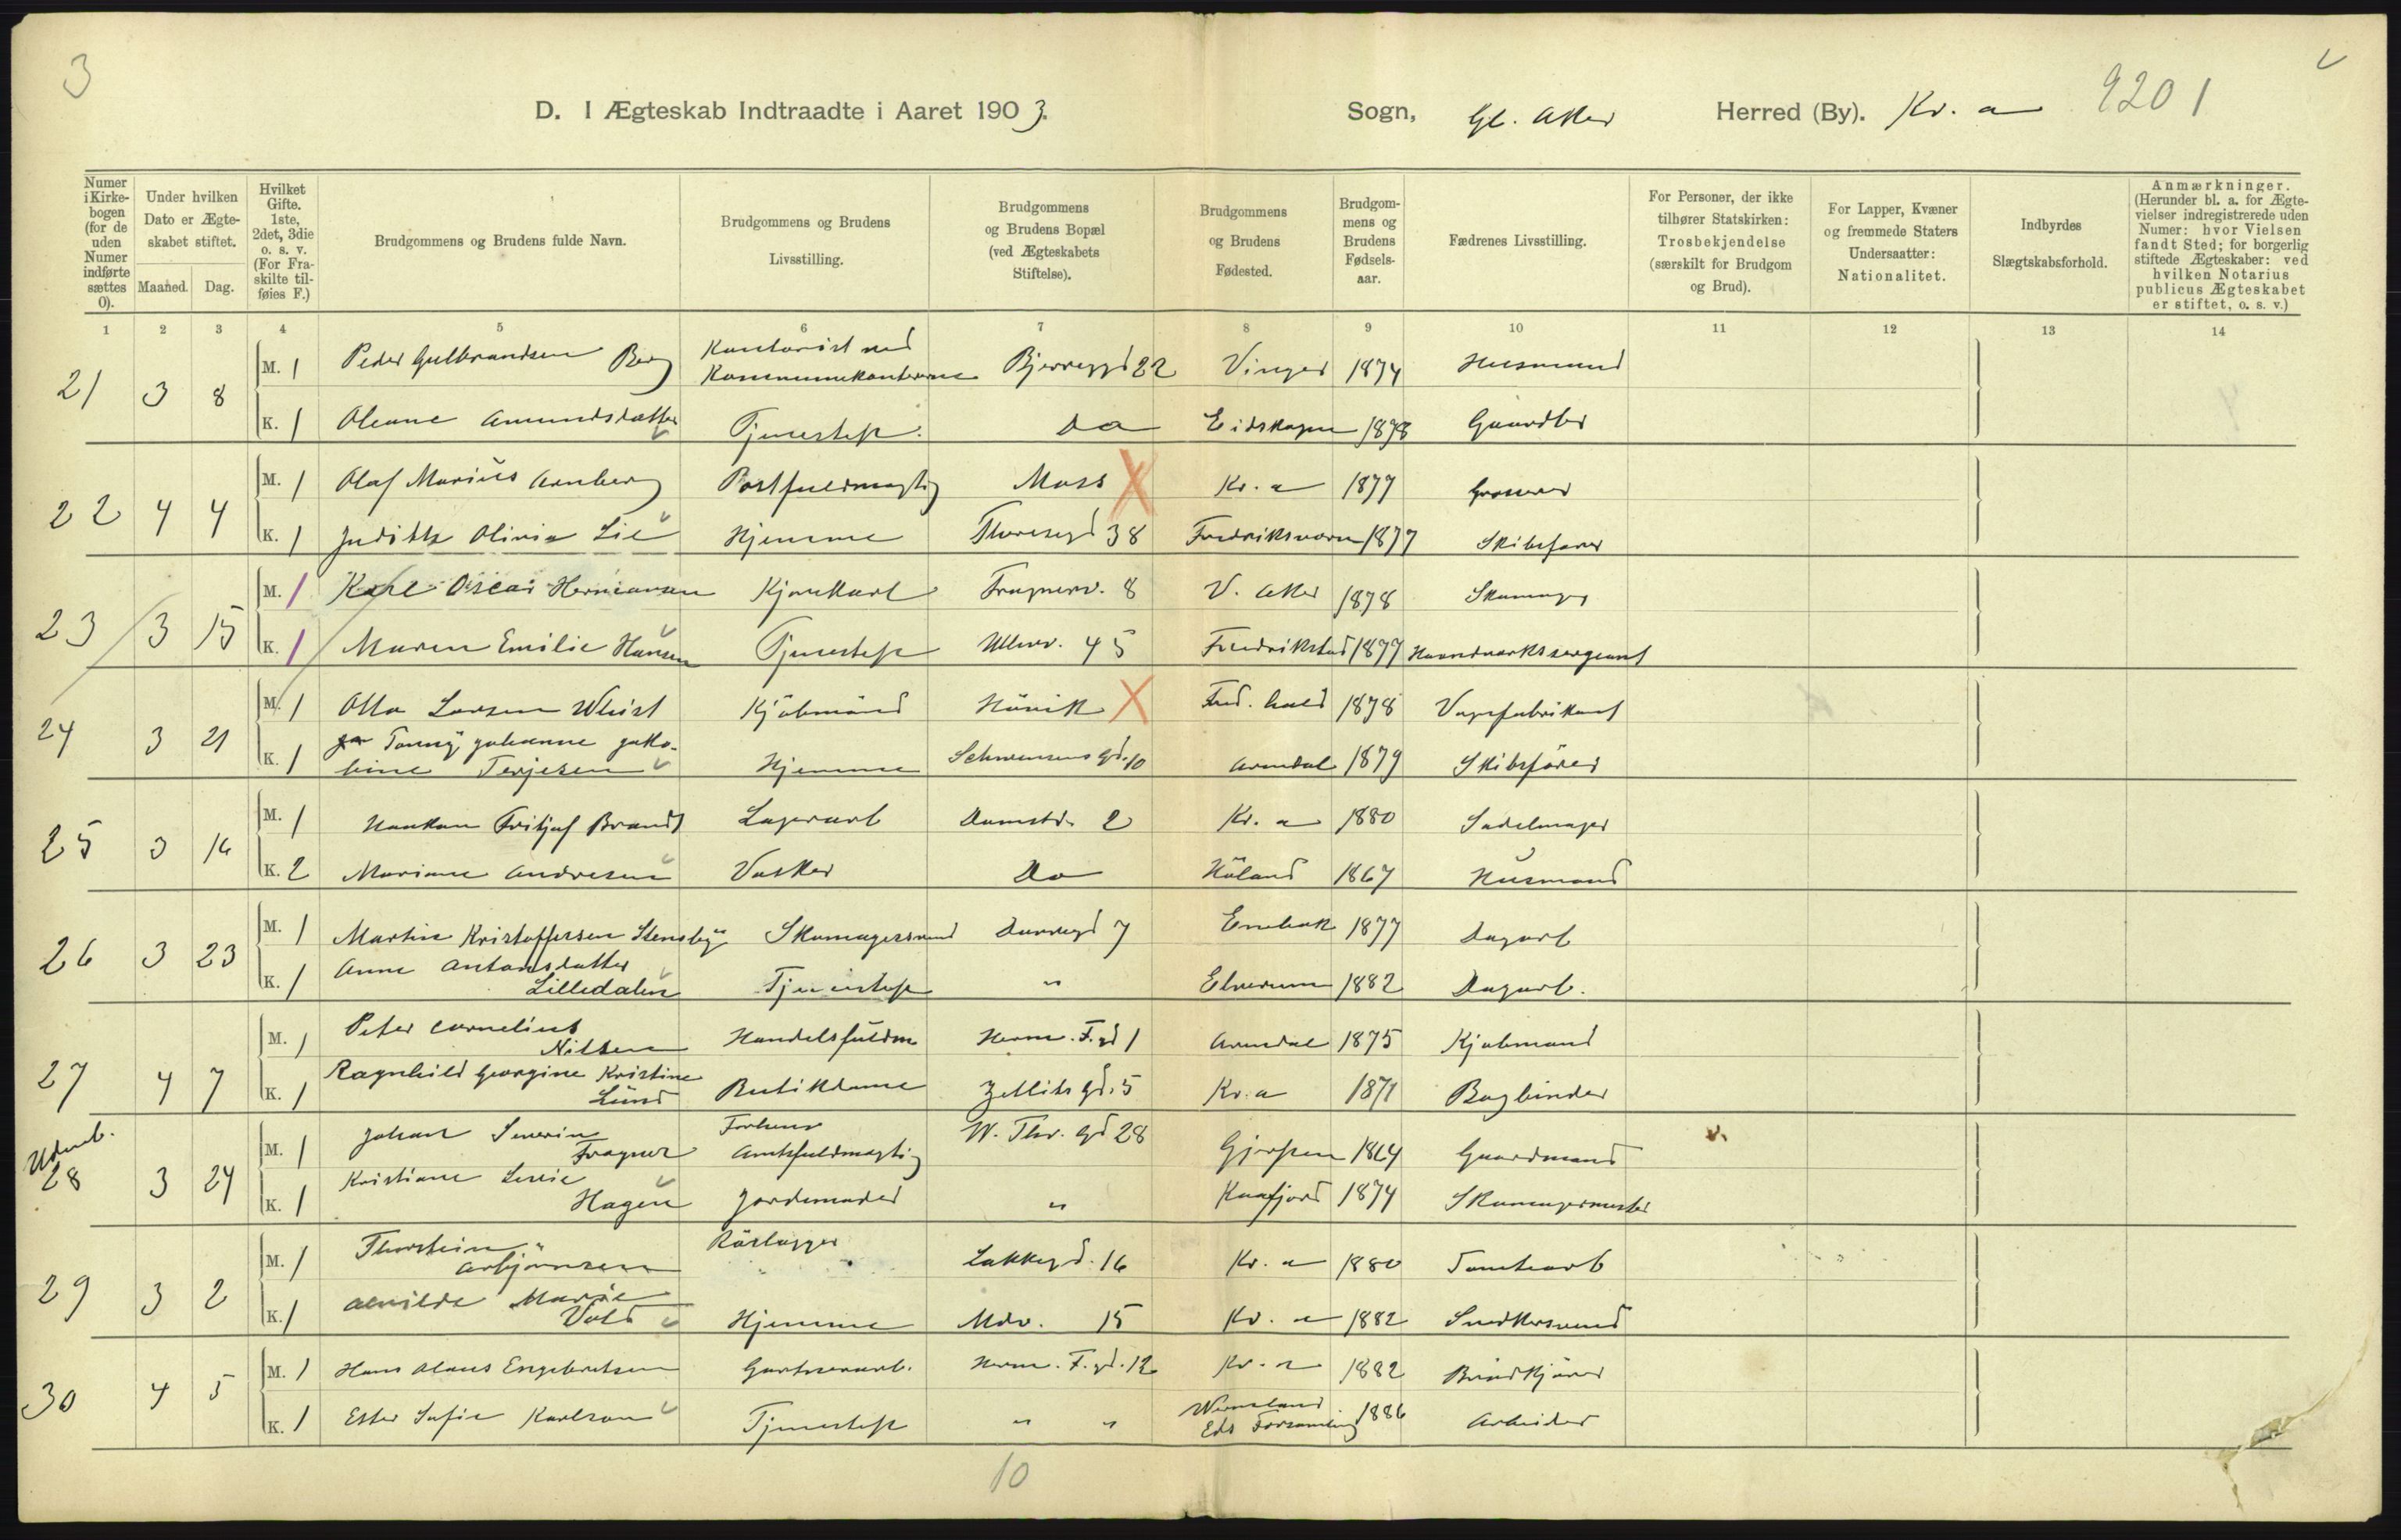 3
D. I Ægteskab Indtraadte i Aaret 1903. Sogn, Gl. Aker Herred (By). Kr. a 9201
Numer i Kirkebogen (for de uden Numer indførte sættes 0).
Under hvilken Dato er Ægteskabet stiftet. Maaned. Dag.
Hvilket Gifte. 1ste, 2det, 3die o. s. v. (For Fraskilte tilføies F.)
Brudgommens og Brudens fulde Navn.
Brudgommens og Brudens Livsstilling.
Brudgommens og Brudens Bopæl (ved Ægteskabets Stiftelse).
Brudgommens og Brudens Fødested.
Brudgommens og Brudens Fødselsaar.
Fædrenes Livsstilling.
For Personer, der ikke tilhører Statskirken: Trosbekjendelse (særskilt for Brudgom og Brud).
For Lapper, Kvæner og fremmede Staters Undersaatter: Nationalitet.
Indbyrdes Slægtskabsforhold.
Anmærkninger. (Herunder bl. a. for Ægtevielser indregistrerede uden Numer: hvor Vielsen fandt Sted; for borgerlig stiftede Ægteskaber: ved hvilken Notarius publicus Ægteskabet er stiftet, o. s. v.)
1 2 3 4 5 6 7 8 9 10 11 12 13 14
21 3 8 M. 1 Peder Gulbrandsen Berg Kontorist ved Kommunekontorerne Bjerregd 22 Vinger 1874 Husmand
K. 1 Oleane Amundsdatter Tjenestep. Do Eidskogen 1878 Gaardbr
22 4 4 M. 1 Olaf Marius Arnberg Postfuldmægtig Moss X Kr. a 1877 Grosserer
K. 1 Judith Olivia Lie Hjemme Theresegd 38 Fredriksværn 1877 Skibsfører
23 3 15 M. 1 Karl Oscar Hermansen Kjørekarl Frognerv. 8 V. Aker 1878 Skomager
K. 1 Maren Emilie Hansen Tjenestep Ullevv. 45 Fredrikstad 1877 Haandværkssergeant
24 3 21 M. 1 Otto Larsen Whist Kjöbmand Hövik X Fred. hald 1878 Vognfabrikant
K. 1 Tonny Johanne Jakobine Terjesen Hjemme Schwensens gd. 10 Arendal 1879 Skibsförer
25 3 16 M. 1 Haakon Fritjof Brandt Lagerarb Damstr. 2 Kr. a 1880 Sadelmager
K. 2 Mariane Andresen Vasker Do Höland 1867 Husmand
26 3 23 M. 1 Martin Kristoffersen Stensby Skomagersvend Darregd 7 Enebak 1877 Dagarb
K. 1 Anne Antonsdatter Lilledalen Tjenestep " Elverum 1882 Dagarb.
27 4 7 M. 1 Peter Cornelius Nilsen Handelsfuldm Herm. F. gd 1 Arendal 1875 Kjøbmand
K. 1 Ragnhild Georgine Kristine Lund Butikdame Zetlitz gd. 5 Kr. a 1871 Bogbinder
28 3 24 M. 1 Johan Severin Fragner Forhenv Amtsfuldmægtig W. Thr. gd 28 Gjerpen 1864 Gaardmand
K. 1 Kristiane Hagen Jordemoder " Kaafjord 1874 Skomagermester
29 3 2 M. 1 Thorstein Asbjørnsen Rörlægger Lakkegd. 16 Kr. a 1880 Tomtearb
K. 1 Alvilde Marie Vold Hjemme Mdv. 15 Kr. a 1882 Snedkersvend
30 4 5 M. 1 Hans Olaus Engebretsen Gartnerarb. Herm. F. gd. 12 Kr. a 1882 Brödkjører
K. 1 Ester Sofie Karlson Tjenestep " " Wermland Eds Forsamling 1886 Arbeider
10